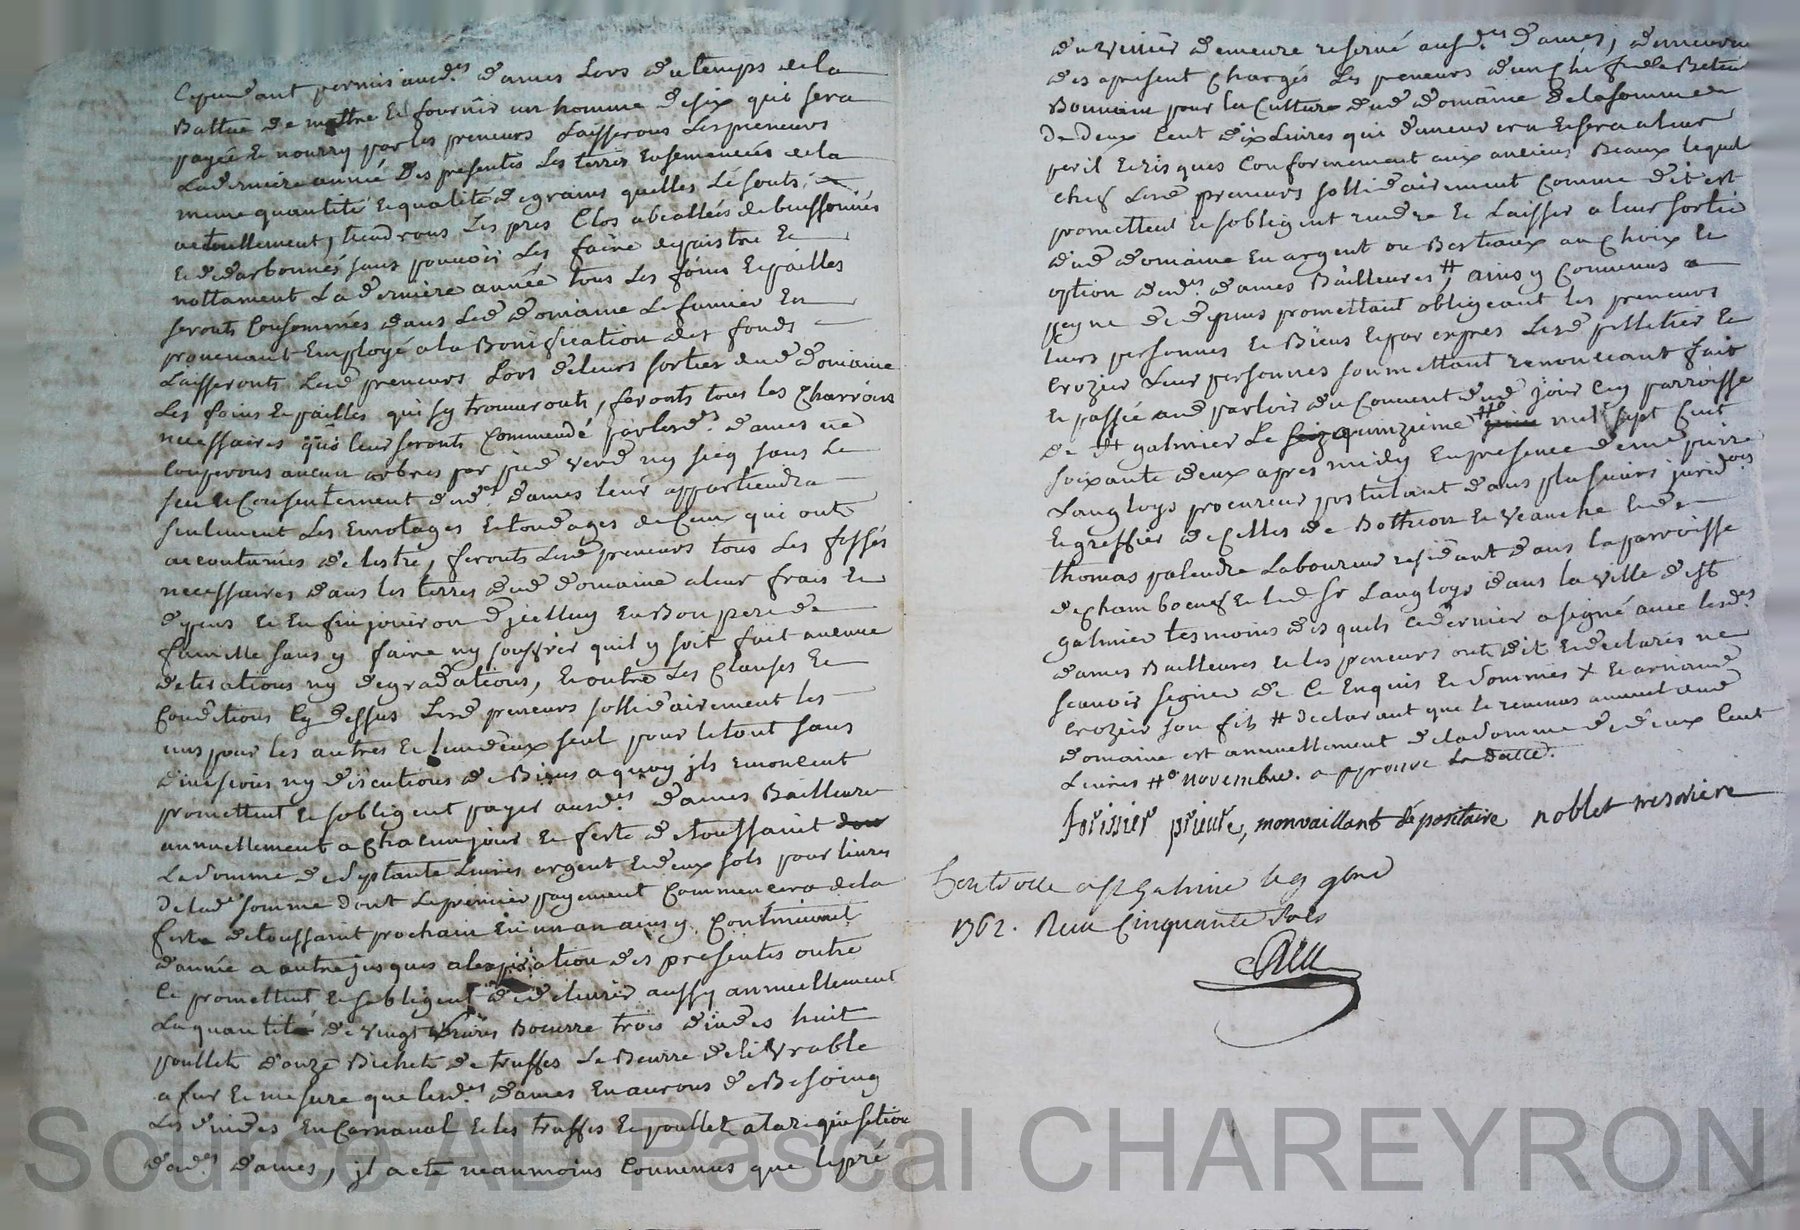 Cependant permis ausd.es dames Lors du temps de la
Battue de mettre et fournir un homme de six qui sera
payée et nourry par les preneurs Laisserons Les preneurs
La derniere année des presentes Les terres Ensemencées de la
meme quantité et qualité de grains quelles Le sont
actuellement, tiendrons Les pres Clos abeallées de buissonnés
et dedarbonnés sans pouvoir Les faire depaistre Et
nottament La derniere année tous Les foins Et pailles
seronts Consommés dans Led domaine Le fumier En
provenant Employé a la Bonification des fonds
Laisseronts Lesd preneurs Lors de leurs sorties dud domaine
Les foins Et pailles qui sy trouveronts, feronts tous les Charrois
necessaires qui leur seronts Commendé par lesd.es dames ne
Couperons aucun arbres par pied verd ny secq sans Le
sceu et Consentement desd.es dames leur appartiendra
seulement Les Emotages Et tondages de Ceux qui onts
accoutumés de lestre, feronts Lesd preneurs tous Les fossés
necessaires dans les terres dud domaine a leur frais Et
depens Et Enfin jouiron dyielluy En Bon pere de
famille sans y faire ny souffrir quil y soit fait aucune
deteriations ny degradations, Et outre Les Clauses Et
Conditions Cy dessus Lesd preneurs sollidairement les
uns pour les autres Et lun deux seul pour le tout sans
division ny discutions de Biens a quoy jls renoncent
promettent Et sobligent payer ausd.es dames Bailleures
annuellement a Chacun jour Et feste de toussaint
La somme de septante Livres argent Et deux sols pour livres
de lad.e somme dont Le premier payement Commencera de la
feste de toussaint prochain En un an ainsy Continuant
dannée a autre jusques a lexpiration des presentes outre
Ce promettent Et sobligent de delivrer aussy annuellement
La quantité de vingt Livres Beurre trois dindes huit
poullets douze Bichets de truffes Le Beurre delivrable
a fur Et mesure que lesd.es dames En aurons de Besoing
Les dindes En Carnaval Et les truffes Et poullets a la requisition
desd.es dames, jl a ete neanmoins Convenus que le pré
du vivier demeure reservé ausd.es dames, demeurent
des apresent Chargés Les preneurs dun Chef de Betail
Bonnain pour la Culture dud domaine de la somme
De deux Cent dix Livres qui demeurera Et sera a leur
peril Et risques Conformement aux anciens Beaux lequel
chef Lesd preneurs sollidairement Comme dit est
promettent Et sobligent rendre Et Laisser a leur sortie
dud domaine En argent ou Bestiaux au Choix Et
option desd.es dames Bailleures #, ainsy Convenus a
peyne de depens promettant obligeant les preneurs
leurs personnes Et Biens Et par expres Lesd pelletier Et
Crozier Leur personnes soumettant renonceant fait
Et passé aud parloir du Couvent dud jour Cy parroisse
de St galmier Le quinzieme #e mil sept Cent
soixante deux apres midy En presence de me pierre
Langloys procureur postulant dans plusieurs jurid.ons
Et greffier de Celles de Botheon Et Veauche Et de
thomas palendre Laboureur residant dans la parroisse
de Chamboeuf Et led sr Langloys dans la ville de st
galmier tesmoins des quels Ce dernier a signé avec lesd.es
dames Bailleures Et les preneurs onts dit Et declarés ne
scavoir signer de Ce Enquis Et sommés X Et armand
Crozier son fils # declarant que le revenus annuel dud
domaine est annuellement de la somme de deux Cent
Livres #e novembre. approuve La datte.
forissier prieure, monvaillant dépositaire noblet tresoriere
Controlle a St Galmier le 9bre
1762. Recu Cinquante sols